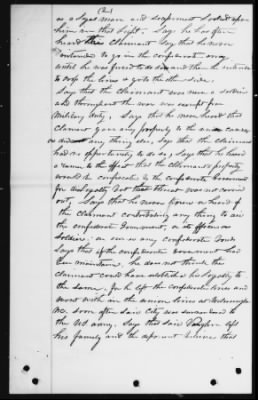 (2)
as a Lyal man and deponent looked upon
him in that light. Say he has often
heard this claimant Say that he never
intended to go in the confederate army
until he was forced to do so and then he intended
to cross the lines & go to the other side.
Say that the Claimant was never a soldier
and throughout the war was exempt from
Military duty. Says that he never heard that
Claimant gave any property to the cause
or did any thing else, Say that the Claimant
had no opportunity to do so, Says that he heard
a rumor to the effect that the Claimants property
would be confiscated to the Confederate Government
for disloyalty but that threat was not carried
out. Says that he never knew or heard of
the Claimant contributing any thing to aid
the confederate Government, or its officers or
Soldiers; or own in any Confederate bonds
Says that if the confederate Government had
been maintained, he does not think the
claimant could have established his loyalty to
the same. for he left the confederate lines and
went with in the union lines at Wilmington
NC. soon after said City was surrendered to
the US army. Says that said Vaughan left
his family and the deponent knows that